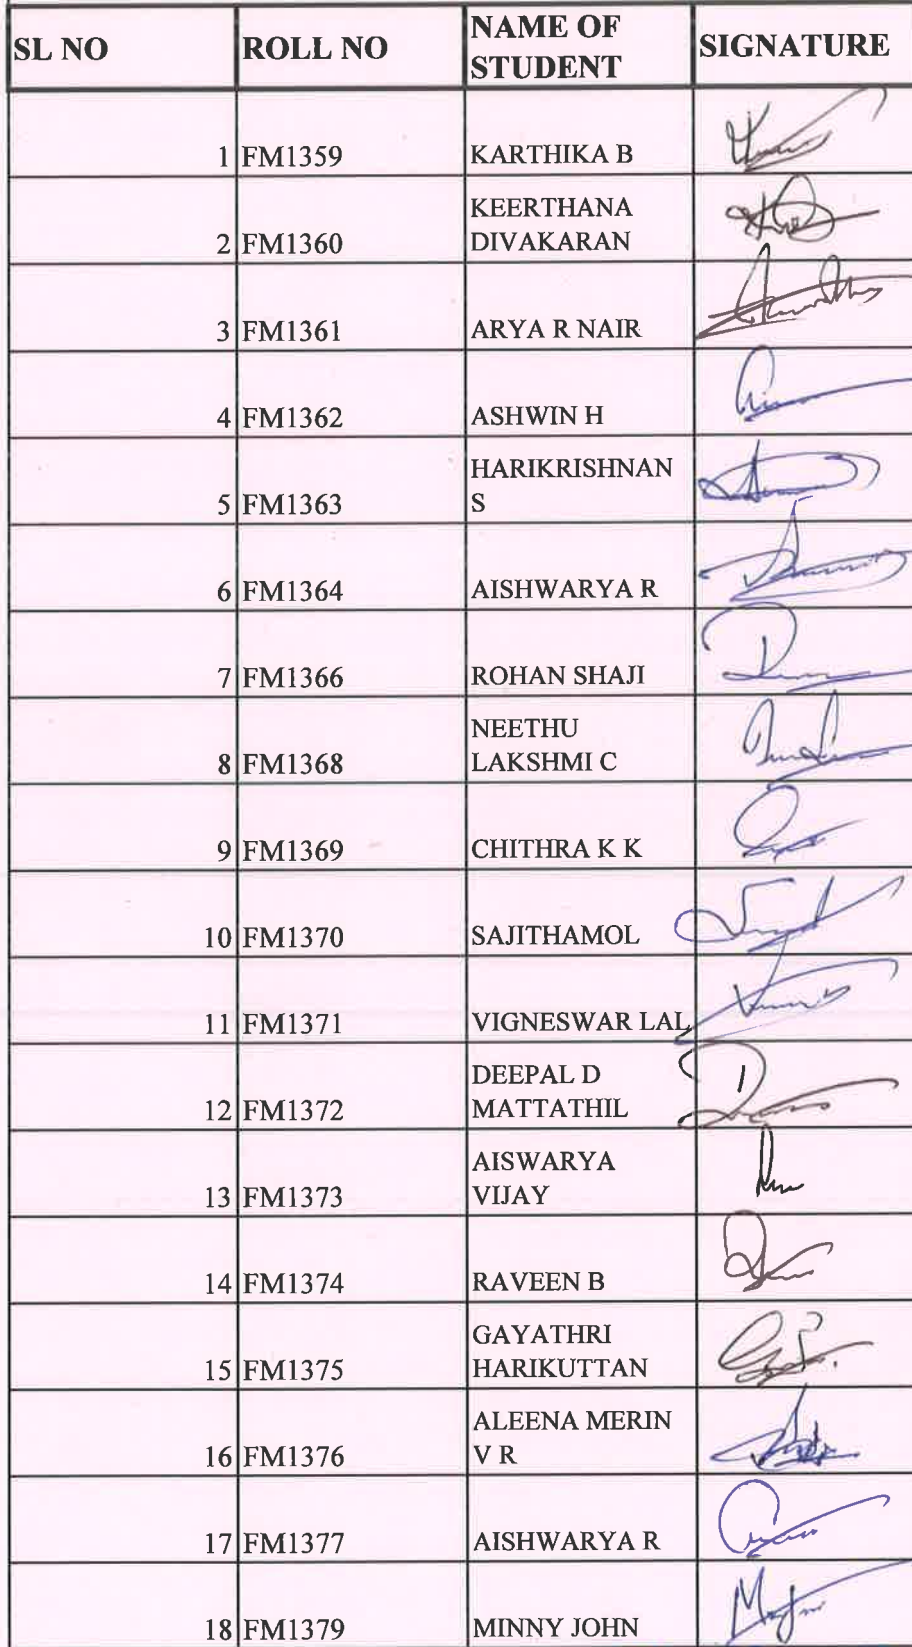 SL NO ROLL NO NAME OF STUDENT SIGNATURE
1 FM1359 KARTHIKA B
2 FM1360 KEERTHANA DIVAKARAN
3 FM1361 ARYA R NAIR
4 FM1362 ASHWIN H
5 FM1363 HARIKRISHNAN S
6 FM1364 AISHWARYA R
7 FM1366 ROHAN SHAJI
8 FM1368 NEETHU LAKSHMI C
9 FM1369 CHITHRA K K
10 FM1370 SAJITHAMOL
11 FM1371 VIGNESWAR LAL
12 FM1372 DEEPAL D MATTATHIL
13 FM1373 AISWARYA VIJAY
14 FM1374 RAVEEN B
15 FM1375 GAYATHRI HARIKUTTAN
16 FM1376 ALEENA MERIN V R
17 FM1377 AISHWARYA R
18 FM1379 MINNY JOHN